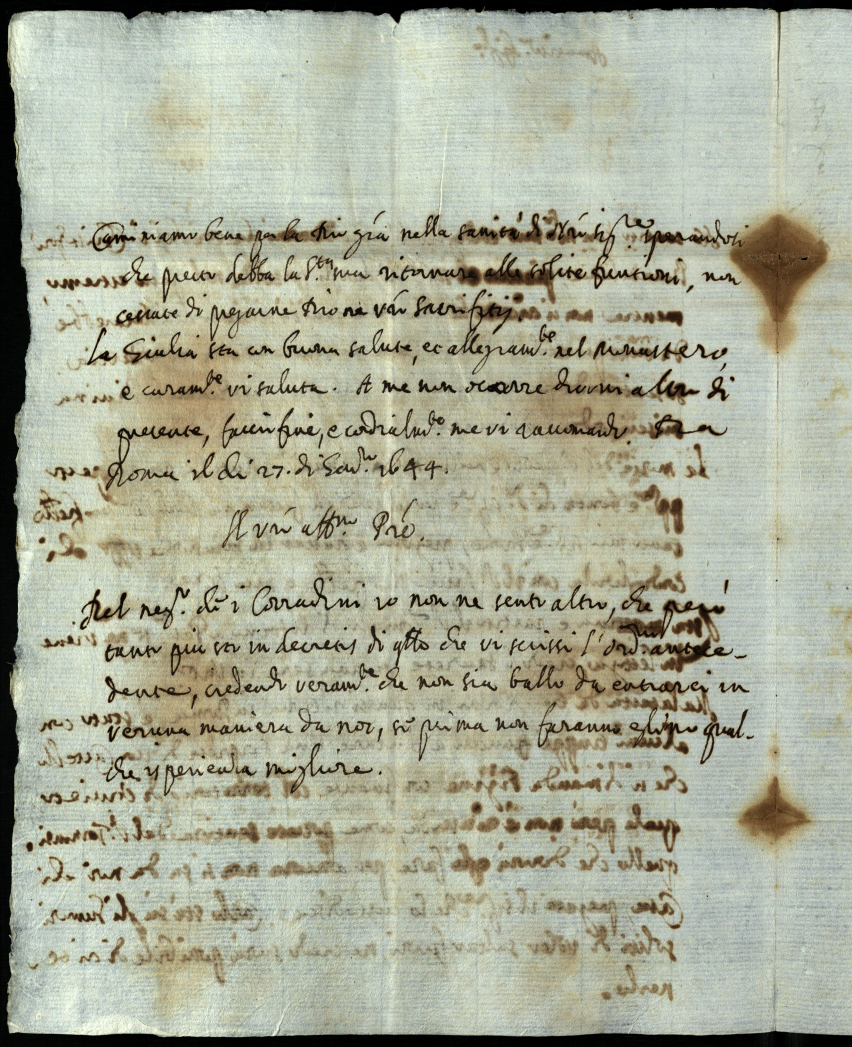 Caminiamo bene per la Dio gra nella sanità di Nro Sig.re sperandosi
che presto debba la S.tà sua ritornare alle solite funtioni, non
cessate di pregarne Dio ne vri sacrifitij.
La Giulia sta con buona salute, et allegram.te nel Monastero
e caram.te vi saluta. A me non occorre dirvi altro di
presente, finire, e cordialm.te me vi raccomando. Da
Roma il di 27. di 1644.
Il vro aff.mo Pre.
Del neg.o de i Corradini io non ne sento altro, che però
tanto più sto in decretis di q.to che vi scrissi l'ord.rio antece-
dente, credendo veram.te che non sia ballo da entrarci in
veruna maniera da noi, se prima non faranno eglino qual-
che isperienza migliore.